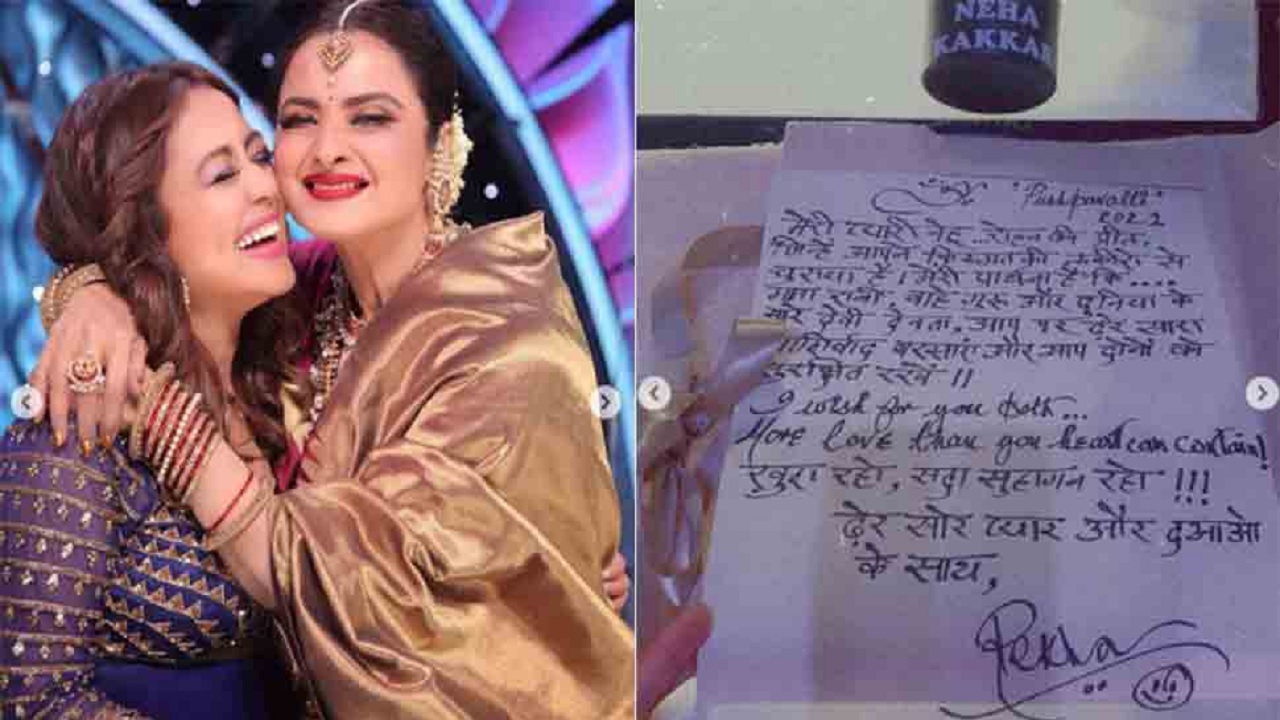 NEHA
KAKKAR
"Pushpavalli"
2022
मेरी प्यारी नेह... रोहन की प्रीत,
जिन्हें आपने किस्मत की लकीरों से
चुराया है। मेरी प्रार्थना है कि....
माता रानी, वाहे गुरू और दुनिया के
सारे देवी देवता, आप पर ढ़ेर सारा
आशिर्वाद बरसाएं और आप दोनों को
सुरक्षित रखें !!
I wish for you both...
More love than you heart can contain!
खुश रहो, सदा सुहागन रहो !!!
ढ़ेर सारे प्यार और दुआओ
के साथ,
Rekha